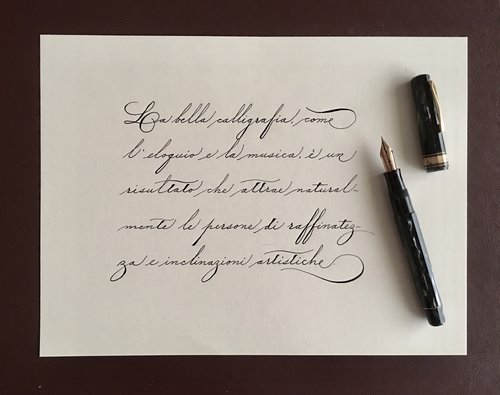 La bella calligrafia, come
l'eloquio e la musica, è un
risultato che attrae natural-
mente le persone di raffinatez-
za e inclinazioni artistiche